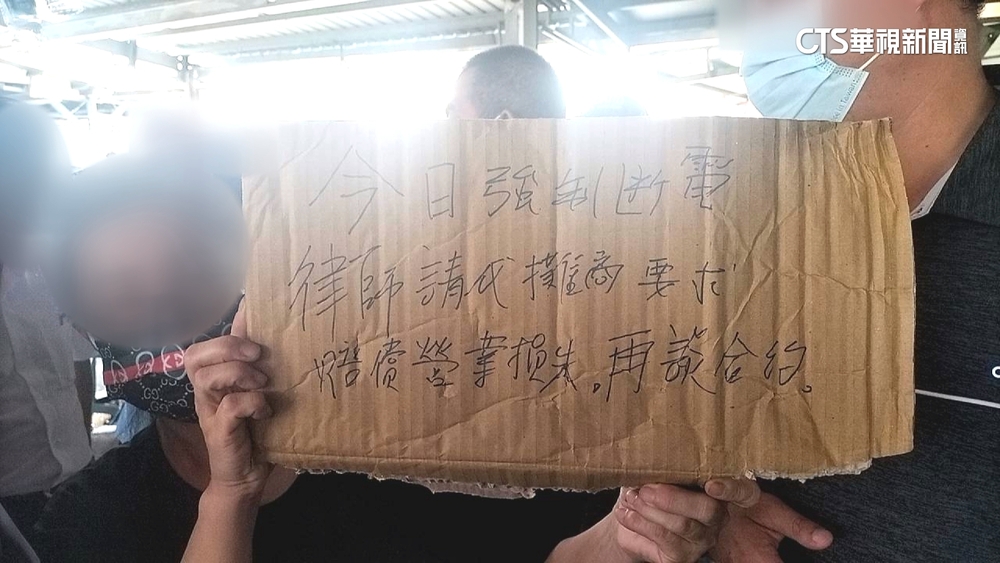 CTS華視新聞資訊
今日強制断電
律師請代攤商要求
賠償營業損失，再談合約。